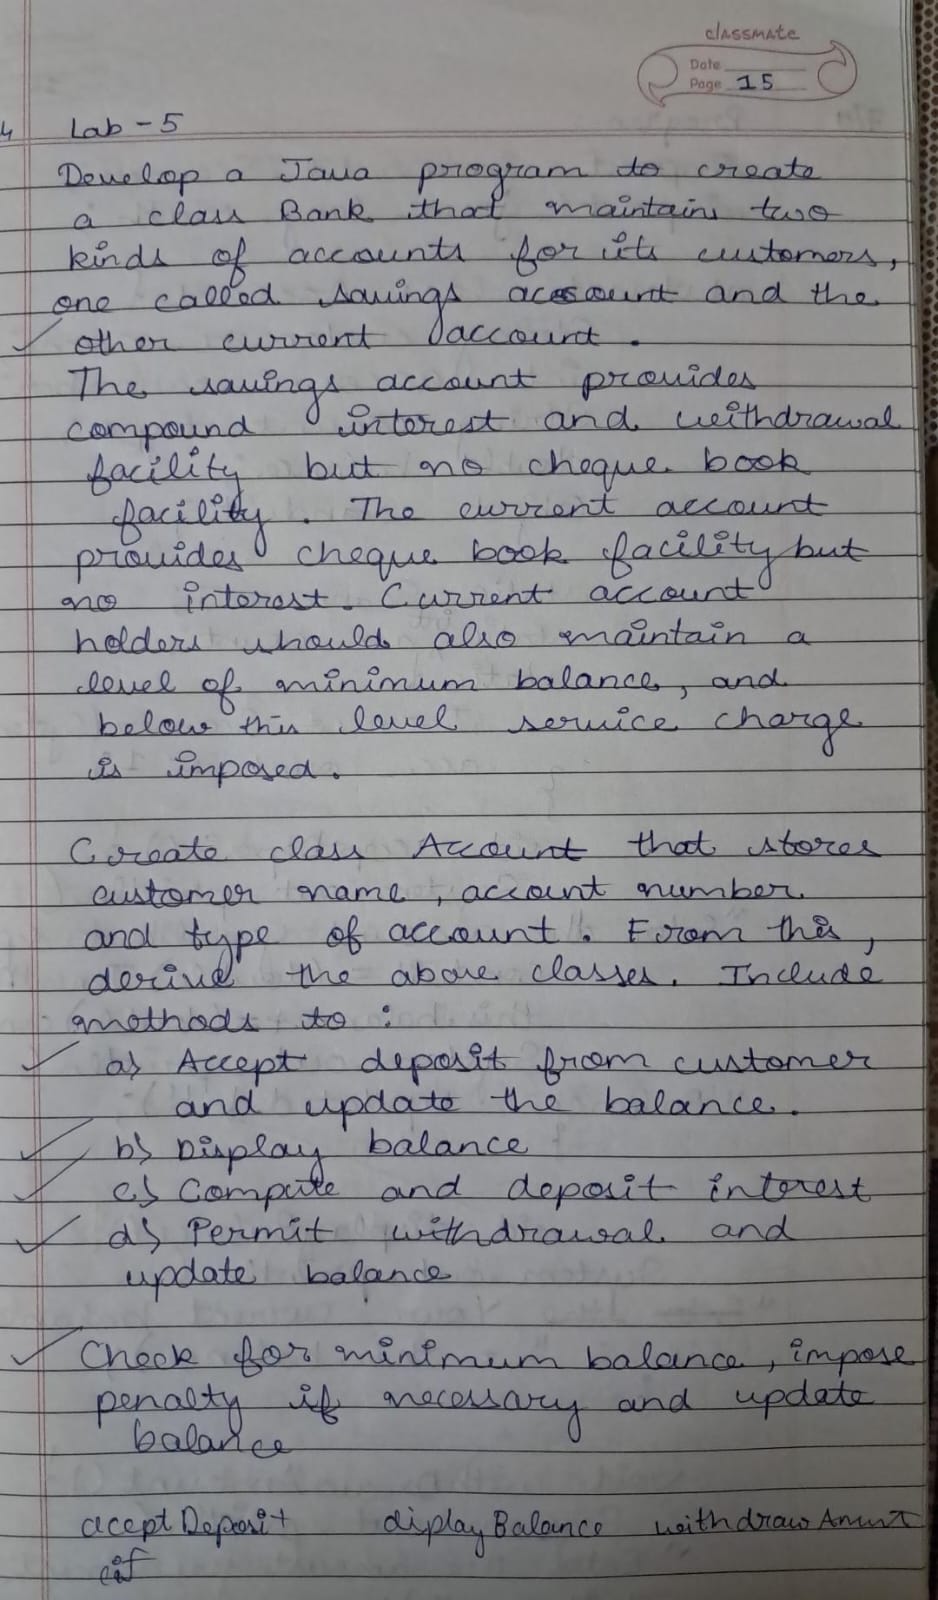 classmate
Date
Page 15
Lab - 5
Develop a Java program to create
a class Bank that maintains two
kinds of accounts for its customers,
one called savings account and the
other current account.
The savings account provides
compound interest and withdrawal
facility but no cheque book
facility. The current account
provides cheque book facility but
no interest. Current account
holders should also maintain a
level of minimum balance, and
below this level service charge
is imposed.
Create class Account that stores
customer name, account number
and type of account. From this,
derive the above classes. Include
methods to:
a) Accept deposit from customer
and update the balance.
b) Display balance
c) Compute and deposit interest
d) Permit withdrawal and
update balance
Check for minimum balance, impose
penalty if necessary and update
balance
aceptDeposit diplayBalance